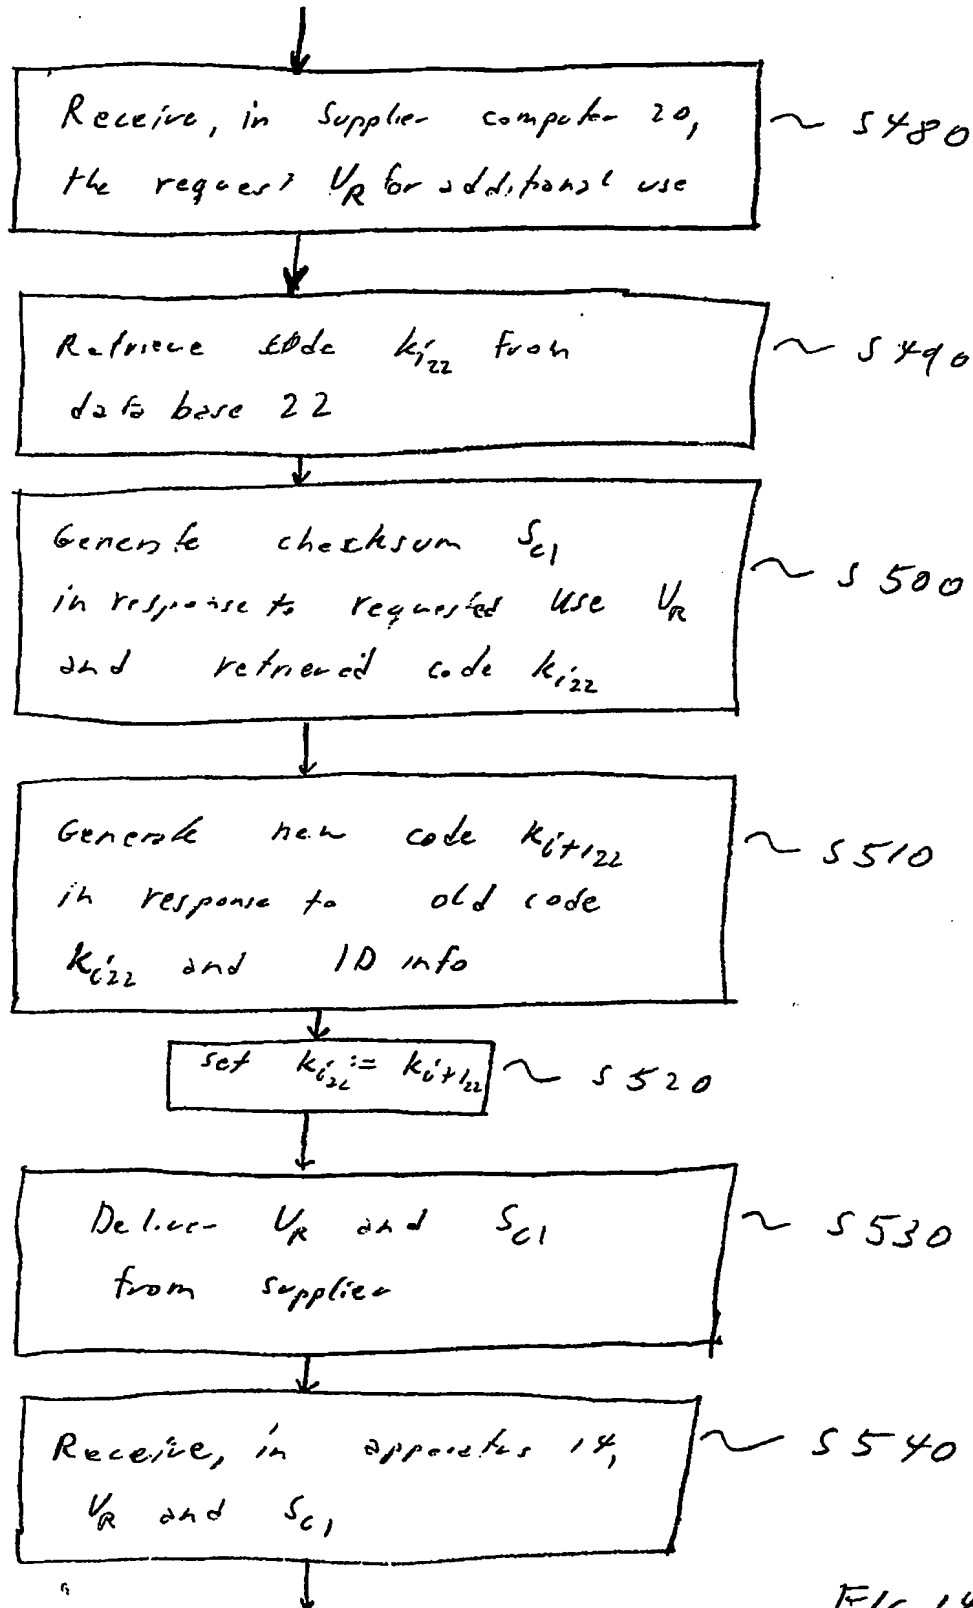 Receive, in Supplier computer 20, ~ S480
the request U_R for additional use
Retrieve code k_i22 from ~ S490
data base 22
Generate checksum S_C1
in response to requested use U_R ~ S500
and retrieved code k_i22
Generate new code k_i+1_22 ~ S510
in response to old code
k_i22 and ID info
set k_i22 := k_i+1_22 ~ S520
Deliver U_R and S_C1 ~ S530
from supplier
Receive, in apparatus 14, ~ S540
U_R and S_C1